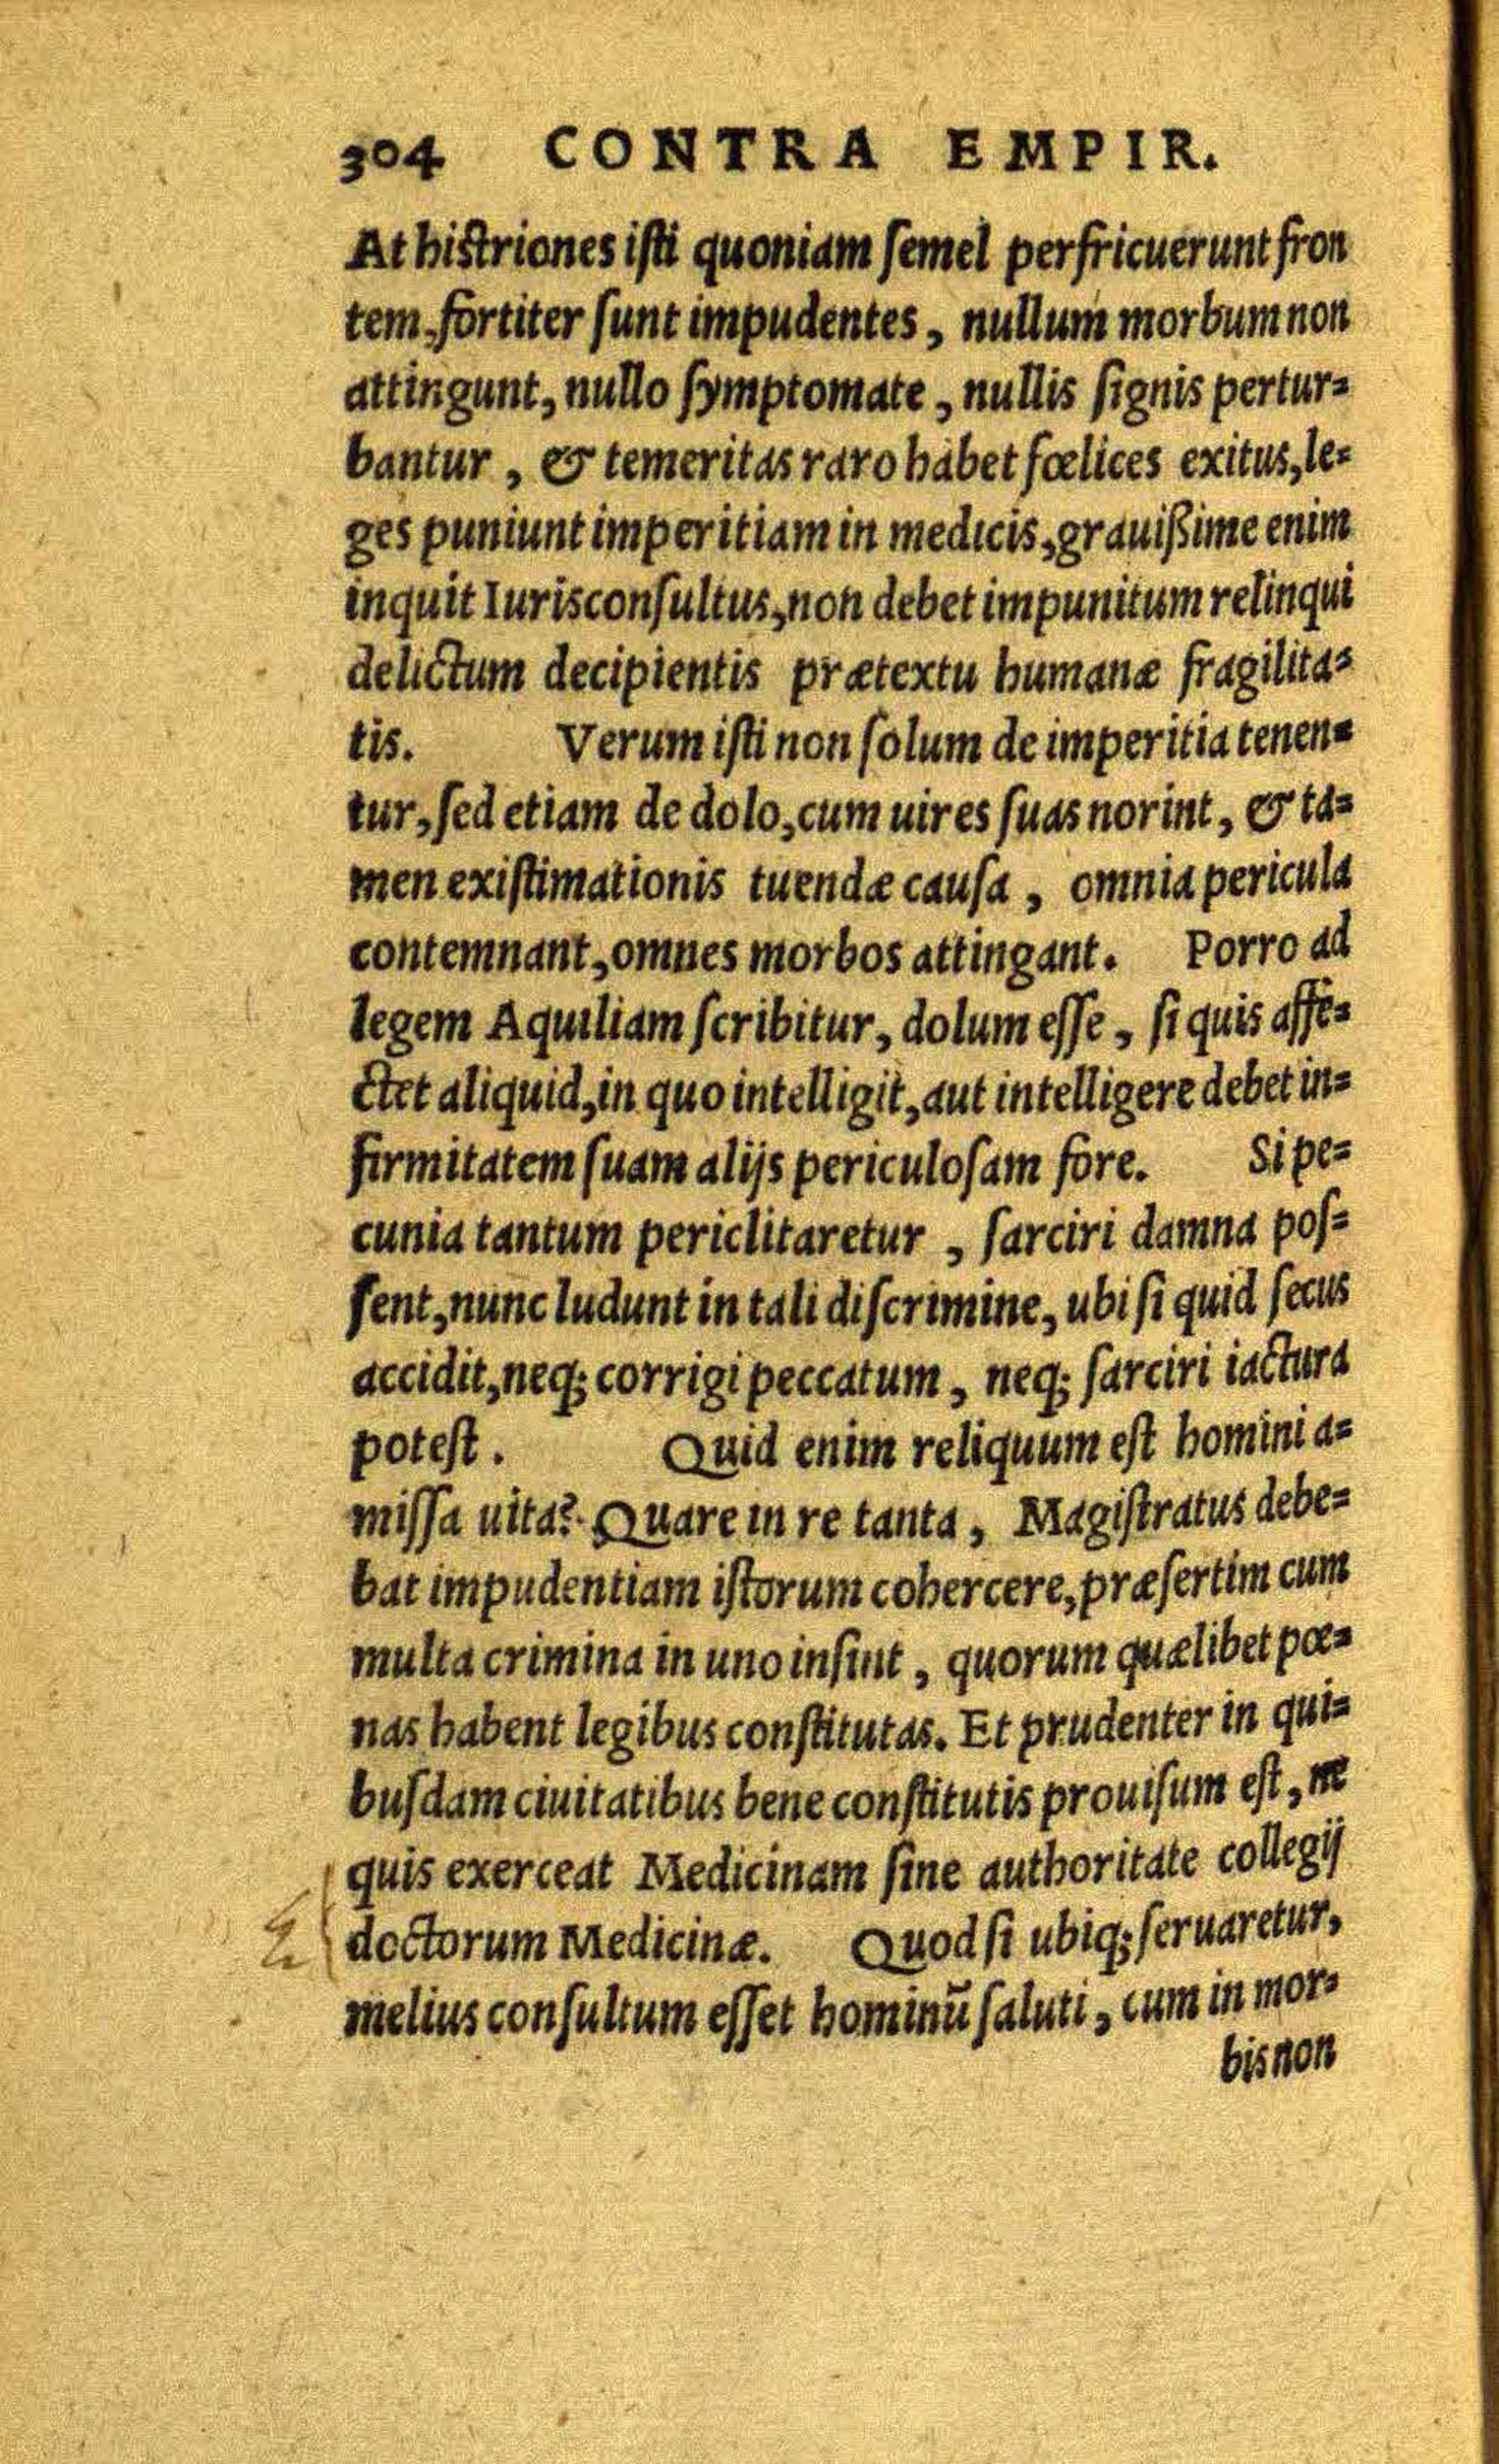 304 CONTRA EMPIR.
At histriones isti quoniam ſemel perfricuerunt fron
tem, fortiter ſunt impudentes, nullum morbum non
attingunt, nullo ſymptomate, nullis ſignis pertur=
bantur, & temeritas raro habet fœlices exitus, le=
ges puniunt imperitiam in medicis, grauißime enim
inquit Iurisconſultus, non debet impunitum relinqui
delictum decipientis prætextu humanæ fragilita=
tis. Verum iſti non ſolum de imperitia tenen=
tur, ſed etiam de dolo, cum uires ſuas norint, & ta=
men exiſtimationis tuendæ cauſa, omnia pericula
contemnant, omnes morbos attingant. Porro ad
legem Aquiliam ſcribitur, dolum eſſe, ſi quis affe=
ctet aliquid, in quo intelligit, aut intelligere debet in=
firmitatem ſuam alijs periculoſam fore. Si pe=
cunia tantum periclitaretur, ſarciri damna poſ=
ſent, nunc ludunt in tali diſcrimine, ubi ſi quid ſecus
accidit, neq; corrigi peccatum, neq; ſarciri iactura
poteſt. Quid enim reliquum eſt homini a=
miſſa uita? Quare in re tanta, Magiſtratus debe=
bat impudentiam iſtorum cohercere, præſertim cum
multa crimina in uno inſint, quorum quælibet pœ=
nas habent legibus conſtitutas. Et prudenter in qui=
buſdam ciuitatibus bene conſtitutis prouiſum eſt, ne
quis exerceat Medicinam ſine authoritate collegij
doctorum Medicinæ. Quod ſi ubiq; ſeruaretur,
melius conſultum eſſet hominũ ſaluti, cum in mor=
bis non